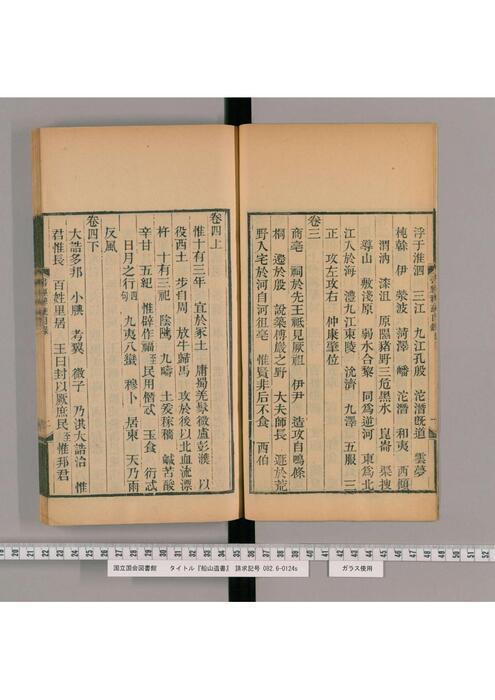 浮于淮泗　三江　九江孔殷　沱潛旣道　雲夢
杶榦　伊　滎波　菏澤　嶓　沱潛　和夷　西傾
渭汭　漆沮　原隰豬野三危黑水　崑崙　渠搜
導山　敷淺原　弱水合黎　同為逆河　東為北
江入於海　澧九江東陵　沇濟　九澤　五服　三
正　攻左攻右　仲康肇位
卷三
商亳　祠於先王祗見厥祖　伊尹　造攻自鳴條
桐　遷於殷　說築傅巖之野　大夫師長　遯於荒
野入宅於河自河徂亳　惟賢非后不食　西伯
卷四上
惟十有三年　宜於冢土　庸蜀羌髳微盧彭濮　以
役西土　步自周　放牛歸馬　攻於後以北血流漂
杵　十有三祀　陰隲　九疇　土爰稼穡　鹹苦酸
辛甘　五紀　惟辟作福至民用僭忒　玉食　衍忒
日月之行四句　九夷八蠻　穆卜　居東　天乃雨
反風
卷四下
大誥多邦　小腆　考翼　微子　乃洪大誥治　惟
君惟長　百姓里居　王曰封以厥庶民至惟邦君
国立国会図書館　タイトル『船山遺書』　請求記号 082.6-0124s　ガラス使用
19 20 21 22 23 24 25 26 27 28 29 30 31 32 33 34 35 36 37 38 39 40 41 42 43 44 45 46 47 48 49 50 51 52